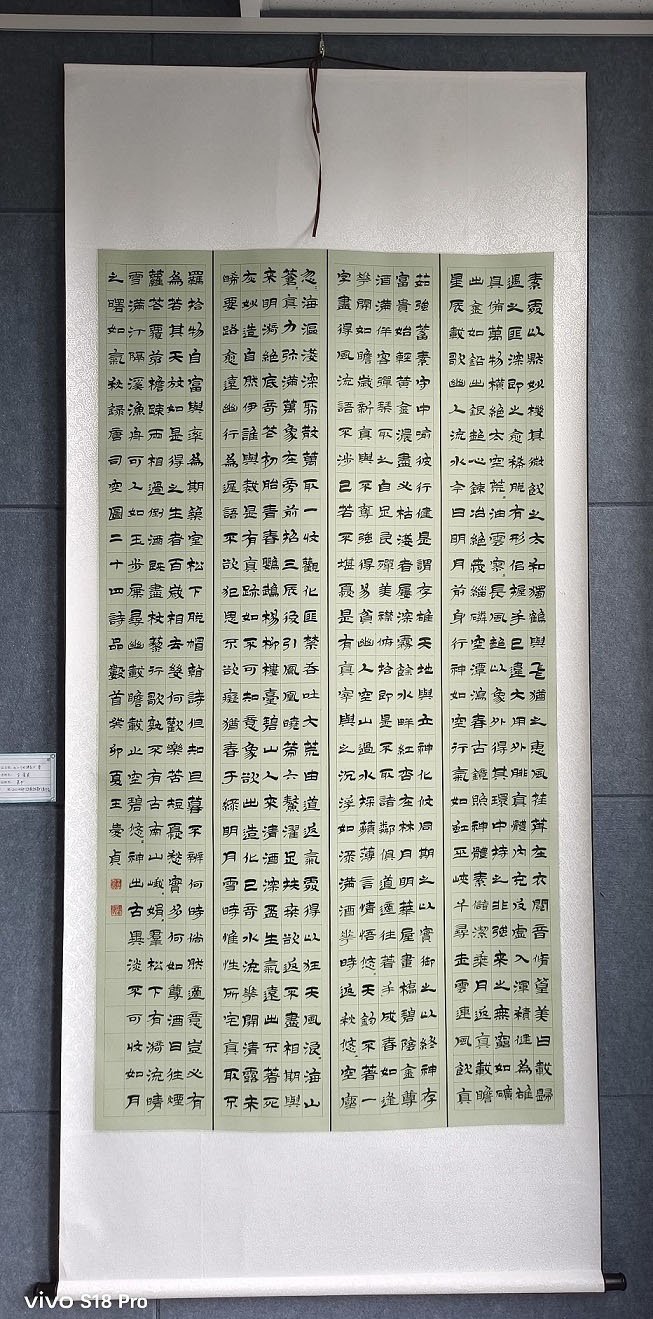 素處以默妙機其微飲之太和獨鶴與飛猶之惠風荏苒在衣閱音脩篁美曰載歸
遇之匪深即之愈稀脫有形侶握手已違大用外腓真體内充返虛入渾積健為雄
具備萬物橫絕太空荒荒油雲寥寥長風超以象外得其環中持之非強來之無窮如礦
出金如鉛出銀超心鍊冶絕愛緇磷空潭瀉春古鏡照神體素儲潔乘月返真載瞻
星辰載歌幽人流水今日明月前身行神如空行氣如虹巫峽千尋走雲連風飲真
茹強蓄素守中喻彼行健是謂存雄天地與立神化攸同期之以實御之以終神存
富貴始輕黃金濃盡必枯淺者屢深霧餘水畔紅杏在林月明華屋畫橋碧陰金尊
酒滿伴客彈琴取之自足良殫美襟俯拾即是不取諸鄰俱道適往著手成春如逢
華開如瞻歲新真與不奪強得易貧幽人空山過水採蘋薄言情悟悠悠天鈞不著一
字盡得風流語不涉己若不堪憂是有真宰與之沉浮如渌滿酒華時返秋悠悠空塵
忽忽海漚淺深聚散萬取一收觀化匪禁吞吐大荒由道返氣處得以狂天風浪浪海山
蒼蒼真力彌滿萬象在旁前招三辰後引鳳凰曉策六鰲濯足扶桑欲返不盡相期與
來明漪絕底奇花初胎青春鸚鵡楊柳樓臺碧山人來清酒深盃生氣遠出不著死
灰妙造自然伊誰與裁是有真跡如不可知意象欲出造化已奇水流花開清露未
晞要路愈遠幽行為遲語不欲犯思不欲癡猶春于綠明月雪時惟性所宅真取不
羈拾物自富與率為期築室松下脫帽看詩但知旦暮不辨何時倘然適意豈必有
為若其天放如是得之生者百歲相去幾何歡樂苦短憂愁實多何如尊酒日往煙
蘿花覆茆檐疎雨相過倒酒既盡杖藜行歌孰不有古南山峨峨娟娟羣松下有漪流晴
雪滿汀隔溪漁舟可人如玉步屧尋幽載瞻載止空碧悠悠神出古異淡不可收如月
之曙如氣秋錄唐司空圖二十四詩品數首癸卯夏王愛貞
vivo S18 Pro